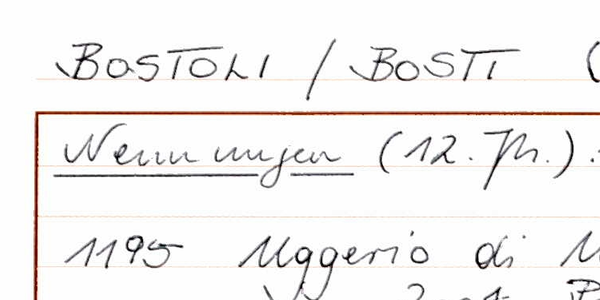 BOSTOLI / BOSTI (
Nennungen (12. Jh.) :
1195 Uggerio di